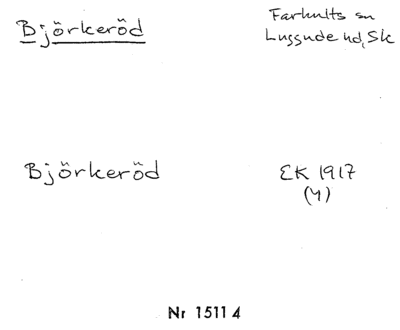 Björkeröd
Farhults sn
Luggude hd, Sk
Björkeröd
EK 1917
(4)
Nr 1511 4